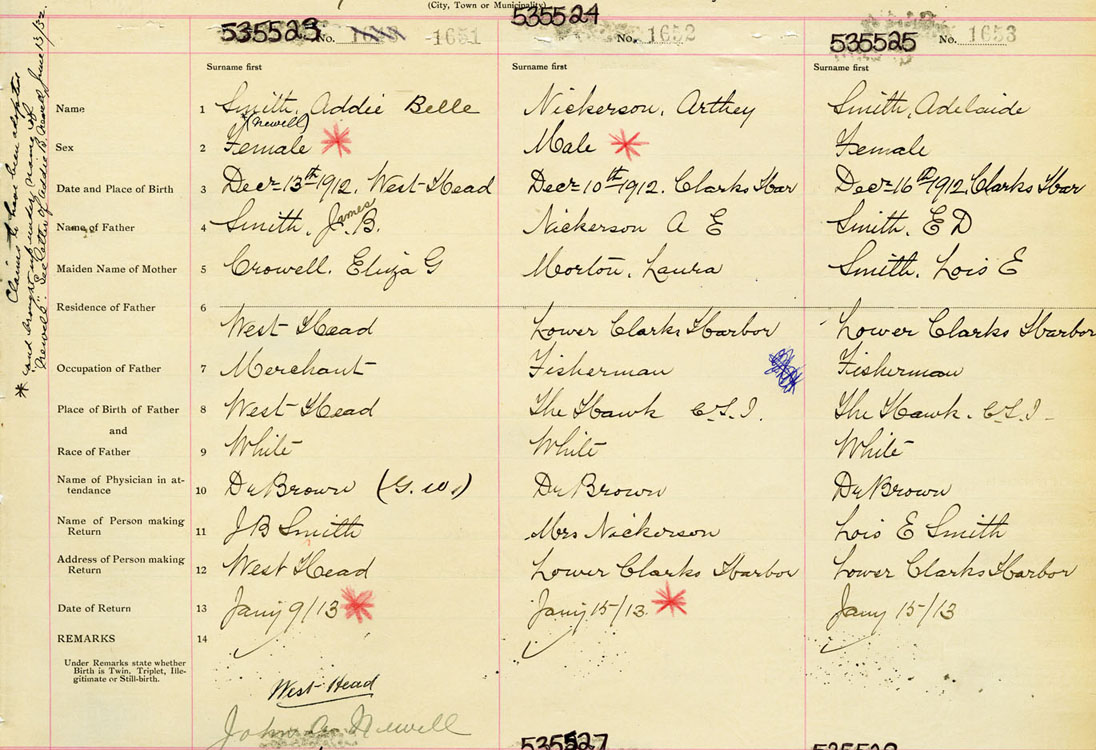 (City, Town or Municipality)
535523 No. 1651
535524 No. 1652
535525 No. 1653
Surname first Surname first Surname first
Name 1 Smith, Addie Belle Nickerson, Arthey Smith, Adelaide
(Newell)
Sex 2 Female Male Female
Date and Place of Birth 3 Decr 13th 1912. West Head Decr 10th 1912. Clarks Har Decr 16th 1912. Clarks Har
James
Name of Father 4 Smith. J. B. Nickerson A E Smith. E D
Maiden Name of Mother 5 Crowell. Eliza G Morton. Laura Smith. Lois E
Residence of Father 6
West Head Lower Clarks Harbor Lower Clarks Harbor
Occupation of Father 7 Merchant Fisherman Fisherman
Place of Birth of Father 8 West Head The Hawk C.S.I. The Hawk. C.S.I.
and
Race of Father 9 White White White
Name of Physician in at-
tendance 10 Dr Brown (G. W.) Dr Brown Dr Brown
Name of Person making
Return 11 J B Smith Mrs Nickerson Lois E Smith
Address of Person making
Return 12 West Head Lower Clarks Harbor Lower Clarks Harbor
Date of Return 13 Jany 9/13 Jany 15/13 Jany 15/13
REMARKS 14
Under Remarks state whether
Birth is Twin, Triplet, Ille-
gitimate or Still-birth.
West Head
Newell
535527
* Claims to have been adopted
and brought up under name of
"Newell". See letter of Addie B. Newell June 13/32.